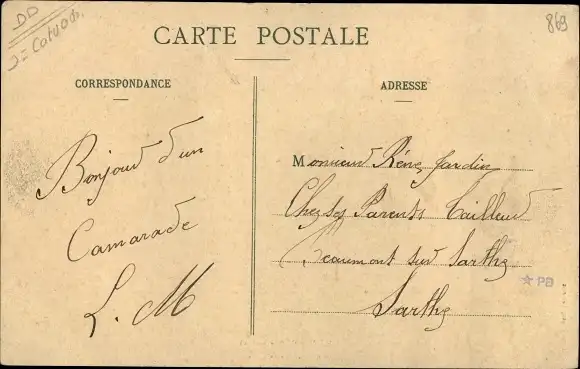 DD
869
CARTE POSTALE
CORRESPONDANCE
ADRESSE
Bonjour d'un
Camarade
L. M
Monsieur Réné Jardin
Chez ses Parents Tailleur
Beaumont sur Sarthe
Sarthe
PB